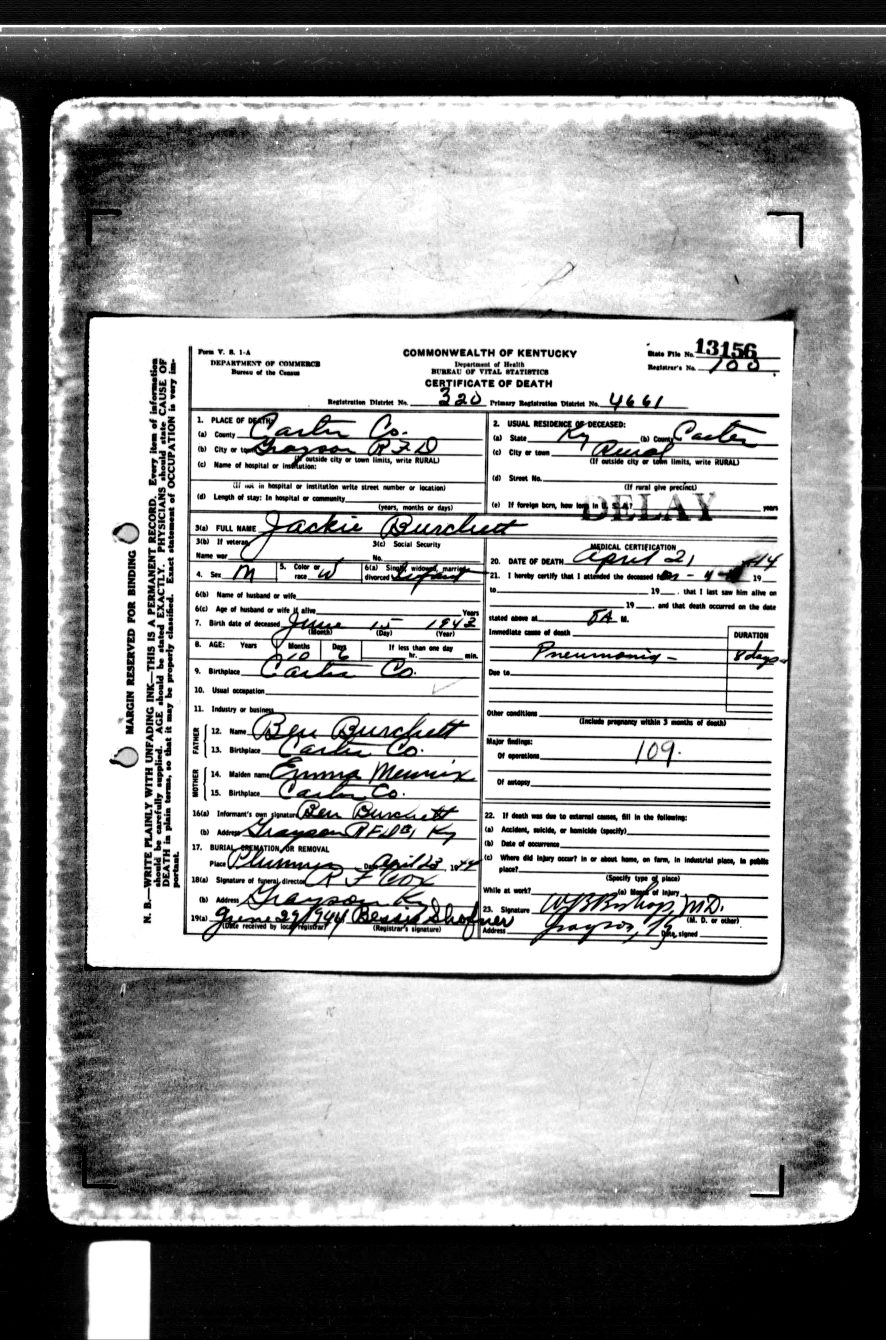 Form V. S. 1-A
DEPARTMENT OF COMMERCE
Bureau of the Census
COMMONWEALTH OF KENTUCKY
Department of Health
BUREAU OF VITAL STATISTICS
CERTIFICATE OF DEATH
State File No. 13156
Registrar's No. 100
Registration District No. 320 Primary Registration District No. 4661
MARGIN RESERVED FOR BINDING
N. B.—WRITE PLAINLY WITH UNFADING INK—THIS IS A PERMANENT RECORD. Every item of information
should be carefully supplied. AGE should be stated EXACTLY. PHYSICIANS should state CAUSE OF
DEATH in plain terms, so that it may be properly classified. Exact statement of OCCUPATION is very im-
portant.
1. PLACE OF DEATH:
(a) County Carter Co.
(b) City or town Grayson R F D
(If outside city or town limits, write RURAL)
(c) Name of hospital or institution:
(If not in hospital or institution write street number or location)
(d) Length of stay: In hospital or community
(years, months or days)
2. USUAL RESIDENCE OF DECEASED:
(a) State Ky (b) County Carter
(c) City or town Rural
(If outside city or town limits, write RURAL)
(d) Street No.
(If rural give precinct)
(e) If foreign born, how long in U. S. A.? years
DELAY
3(a) FULL NAME Jackie Burchett
3(b) If veteran,
Name war
3(c) Social Security
No.
4. Sex M
5. Color or
race W
6(a) Single, widowed, married,
divorced Infant
6(b) Name of husband or wife
6(c) Age of husband or wife if alive Years
7. Birth date of deceased June 15 1943
(Month) (Day) (Year)
8. AGE: Years Months Days If less than one day
10 6 hr. min.
9. Birthplace Carter Co.
10. Usual occupation
11. Industry or business
FATHER
12. Name Ben Burchett
13. Birthplace Carter Co.
MOTHER
14. Maiden name Emma Mennix
15. Birthplace Carter Co.
16(a) Informant's own signature Ben Burchett
(b) Address Grayson R F D #1 Ky
17. BURIAL, CREMATION, OR REMOVAL
Place Plummer Date April 23, 1944
18(a) Signature of funeral director R F Cox
(b) Address Grayson Ky
19(a) June 29 1944 Bessie Shofner
(Date received by local registrar) (Registrar's signature)
MEDICAL CERTIFICATION
20. DATE OF DEATH April 21 1944
21. I hereby certify that I attended the deceased from 19
to 19 , that I last saw him alive on
19 , and that death occurred on the date
stated above at 8A M.
Immediate cause of death
DURATION
Pneumonia - 8 days
Due to
Other conditions
(Include pregnancy within 3 months of death)
Major findings:
Of operations 109.
Of autopsy
22. If death was due to external causes, fill in the following:
(a) Accident, suicide, or homicide (specify)
(b) Date of occurrence
(c) Where did injury occur? In or about home, on farm, in industrial place, in public
place?
(Specify type of place)
While at work? (e) Means of injury
23. Signature W B Bishop, M.D.
(M. D. or other)
Address Grayson, Ky Date signed